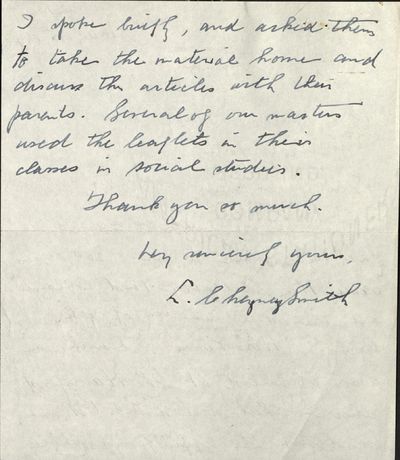 I spoke briefly, and asked them
to take the material home and
discuss the articles with their
parents. Several of our masters
used the leaflets in their
classes in social studies.
Thank you so much.
Very sincerely yours,
L. Cheyney Smith